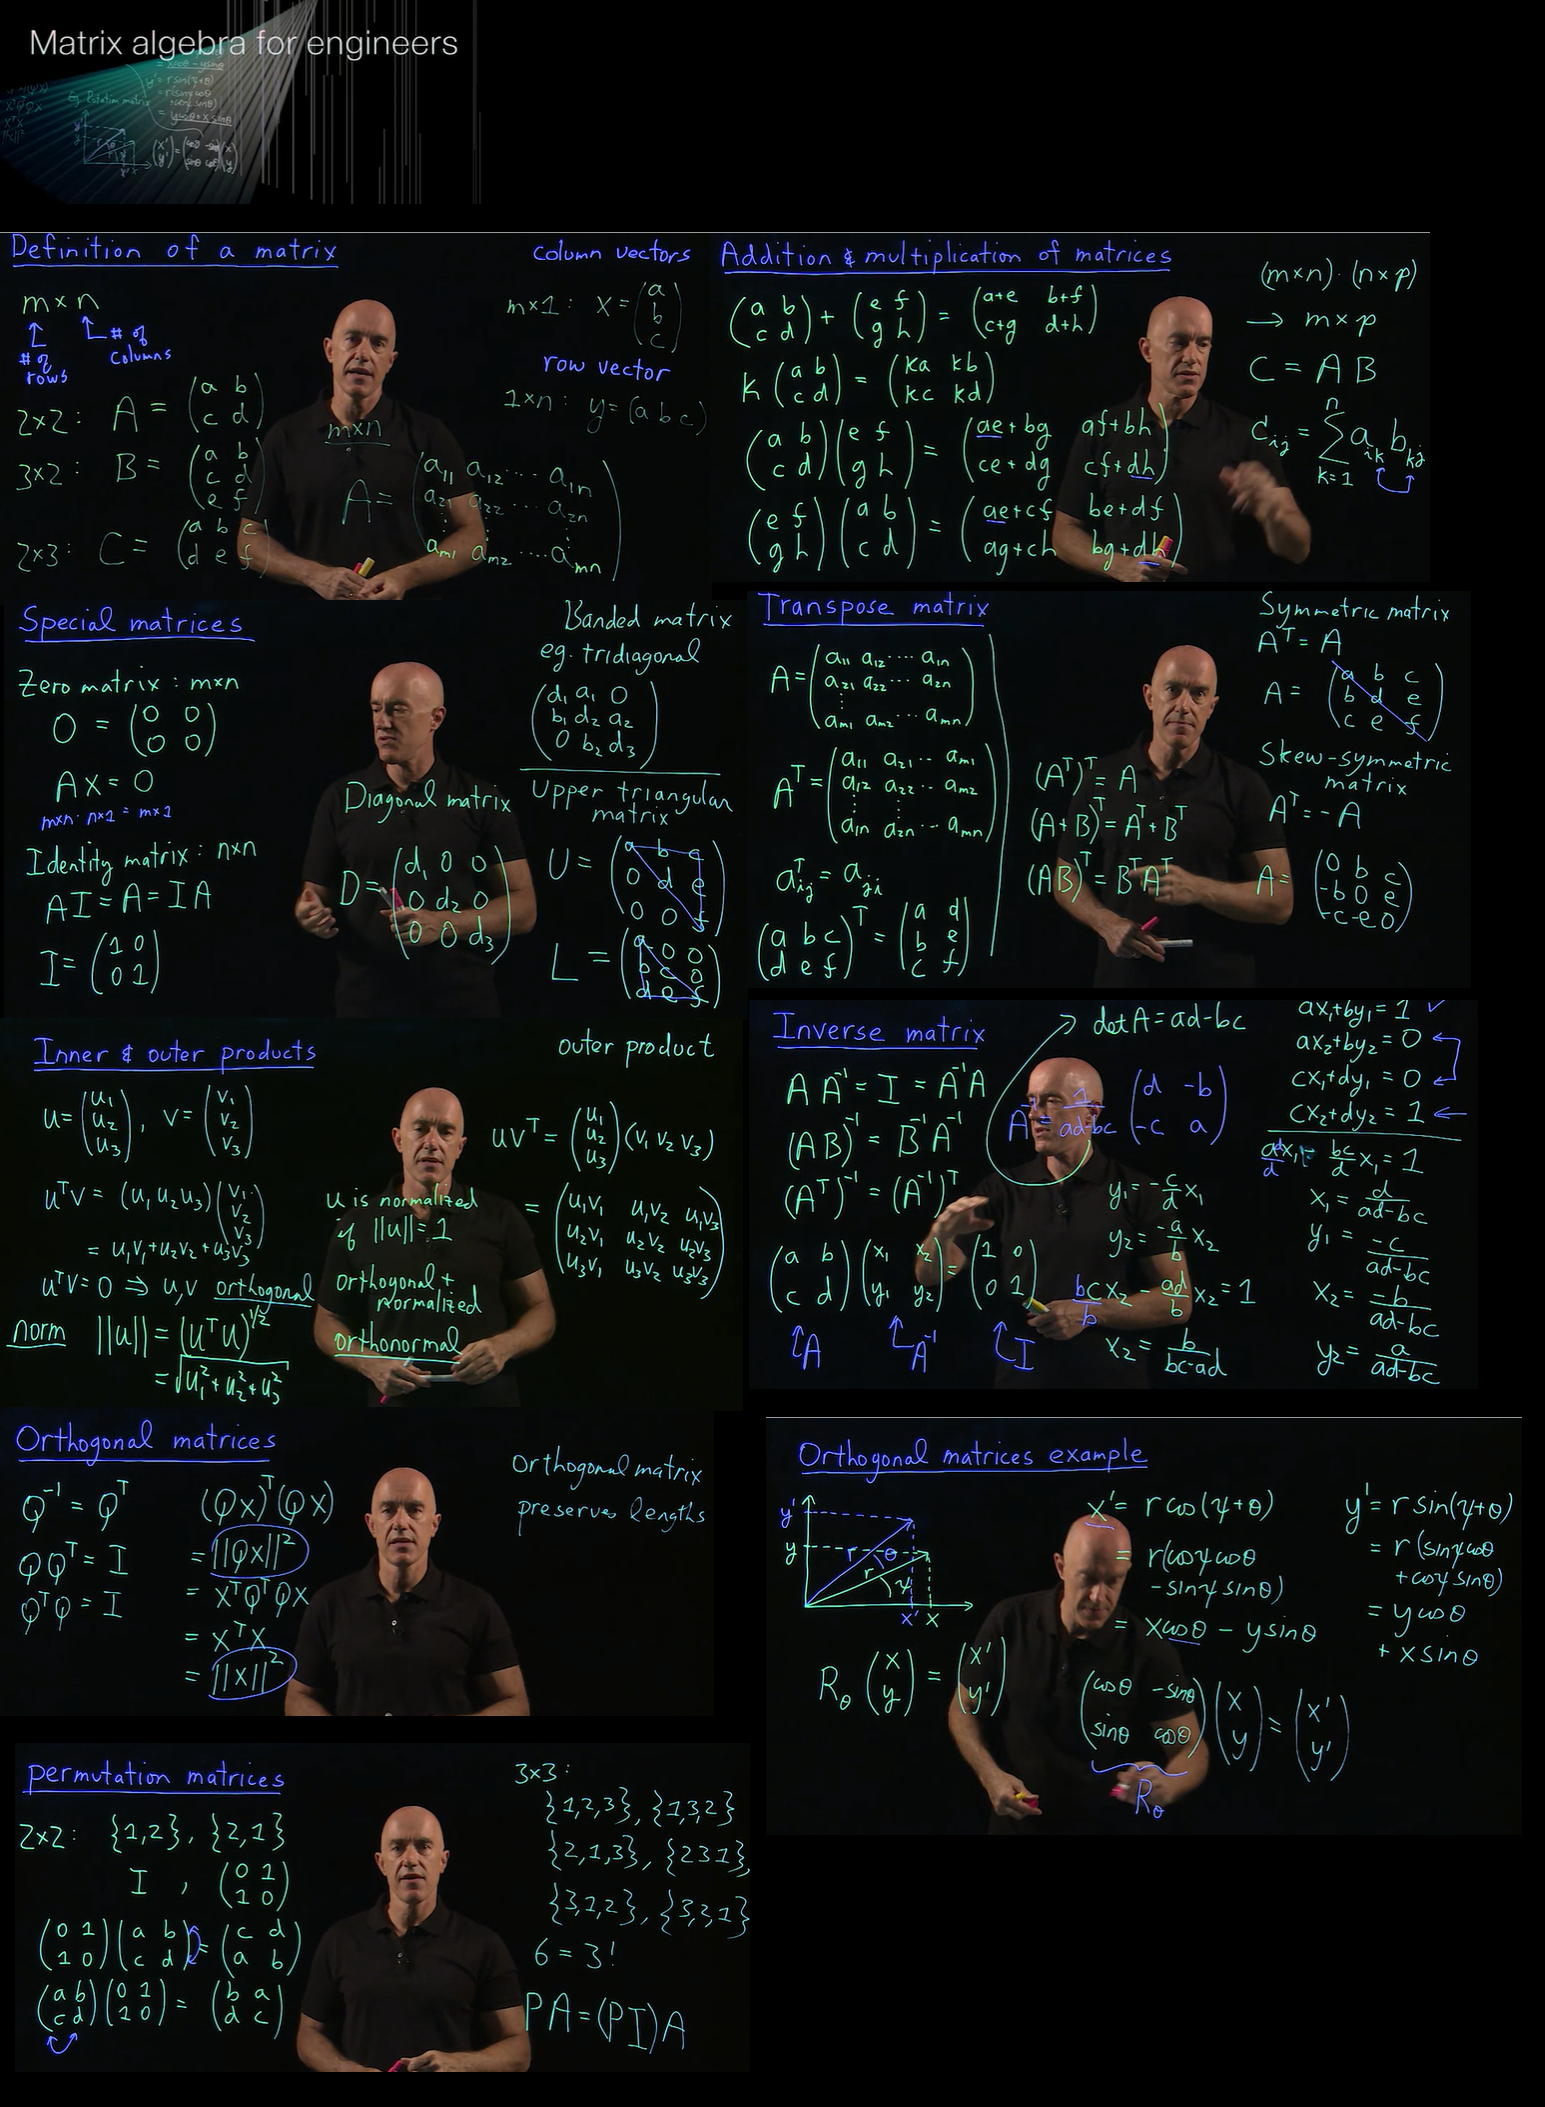 Matrix algebra for engineers
Definition of a matrix
m×n
# of rows
# of columns
2×2: A = (a b
c d)
3×2: B = (a b
c d
e f)
2×3: C = (a b c
d e f)
column vectors
m×1: x = (a
b
c)
row vector
1×n: y = (a b c)
m×n
A = (a₁₁ a₁₂ ... a₁ₙ
a₂₁ a₂₂ ... a₂ₙ
⋮ ⋮
aₘ₁ aₘ₂ .... aₘₙ)
Addition & multiplication of matrices
(a b
c d) + (e f
g h) = (a+e b+f
c+g d+h)
k (a b
c d) = (ka kb
kc kd)
(a b
c d)(e f
g h) = (ae+bg af+bh
ce+dg cf+dh)
(e f
g h)(a b
c d) = (ae+cf be+df
ag+ch bg+dh)
(m×n)·(n×p)
→ m×p
C = AB
cᵢⱼ = Σ (k=1 to n) aᵢₖ bₖⱼ
Special matrices
Zero matrix: m×n
0 = (0 0
0 0)
Ax = 0
m×n · n×1 = m×1
Identity matrix: n×n
AI = A = IA
I = (1 0
0 1)
Diagonal matrix
D = (d₁ 0 0
0 d₂ 0
0 0 d₃)
Banded matrix
eg. tridiagonal
(d₁ a₁ 0
b₁ d₂ a₂
0 b₂ d₃)
Upper triangular
matrix
U = (a b c
0 d e
0 0 f)
L = (a 0 0
b c 0
d e f)
Transpose matrix
A = (a₁₁ a₁₂ ... a₁ₙ
a₂₁ a₂₂ ... a₂ₙ
⋮
aₘ₁ aₘ₂ ... aₘₙ)
Aᵀ = (a₁₁ a₂₁ .. aₘ₁
a₁₂ a₂₂ .. aₘ₂
⋮ ⋮
a₁ₙ a₂ₙ .. aₘₙ)
aᵀᵢⱼ = aⱼᵢ
(a b c
d e f)ᵀ = (a d
b e
c f)
(Aᵀ)ᵀ = A
(A+B)ᵀ = Aᵀ+Bᵀ
(AB)ᵀ = BᵀAᵀ
Symmetric matrix
Aᵀ = A
A = (a b c
b d e
c e f)
Skew-symmetric
matrix
Aᵀ = -A
A = (0 b c
-b 0 e
-c -e 0)
Inner & outer products
u = (u₁
u₂
u₃), v = (v₁
v₂
v₃)
uᵀv = (u₁ u₂ u₃)(v₁
v₂
v₃)
= u₁v₁+u₂v₂+u₃v₃
uᵀv = 0 ⇒ u,v orthogonal
norm ||u|| = (uᵀu)^1/2
= √u₁²+u₂²+u₃²
u is normalized
if ||u|| = 1
orthogonal +
normalized
orthonormal
outer product
uvᵀ = (u₁
u₂
u₃)(v₁ v₂ v₃)
= (u₁v₁ u₁v₂ u₁v₃
u₂v₁ u₂v₂ u₂v₃
u₃v₁ u₃v₂ u₃v₃)
Inverse matrix
AA⁻¹ = I = A⁻¹A
(AB)⁻¹ = B⁻¹A⁻¹
(Aᵀ)⁻¹ = (A⁻¹)ᵀ
(a b
c d)(x₁ x₂
y₁ y₂) = (1 0
0 1)
A A⁻¹ I
det A = ad-bc
A⁻¹ = 1/(ad-bc) (d -b
-c a)
y₁ = -c/d x₁
y₂ = -a/b x₂
bc/b x₂ - ad/b x₂ = 1
x₂ = b/(bc-ad)
ax₁+by₁ = 1 ✓
ax₂+by₂ = 0
cx₁+dy₁ = 0
cx₂+dy₂ = 1
ad/d x₁ - bc/d x₁ = 1
x₁ = d/(ad-bc)
y₁ = -c/(ad-bc)
x₂ = -b/(ad-bc)
y₂ = a/(ad-bc)
Orthogonal matrices
Q⁻¹ = Qᵀ
QQᵀ = I
QᵀQ = I
(Qx)ᵀ(Qx)
= ||Qx||²
= xᵀQᵀQx
= xᵀx
= ||x||²
Orthogonal matrix
preserves lengths
Orthogonal matrices example
y'
y
r θ
r ψ
x' x
R_θ (x
y) = (x'
y')
x' = r cos(ψ+θ)
= r(cosψcosθ
-sinψ sinθ)
= xcosθ - ysinθ
y' = r sin(ψ+θ)
= r(sinψcosθ
+cosψ sinθ)
= ycosθ
+ xsinθ
(cosθ -sinθ
sinθ cosθ)(x
y) = (x'
y')
R_θ
permutation matrices
2×2: {1,2}, {2,1}
I , (0 1
1 0)
(0 1
1 0)(a b
c d) = (c d
a b)
(a b
c d)(0 1
1 0) = (b a
d c)
3×3:
{1,2,3}, {1,3,2}
{2,1,3}, {2 3 1},
{3,1,2}, {3,2,1}
6 = 3!
PA = (PI)A